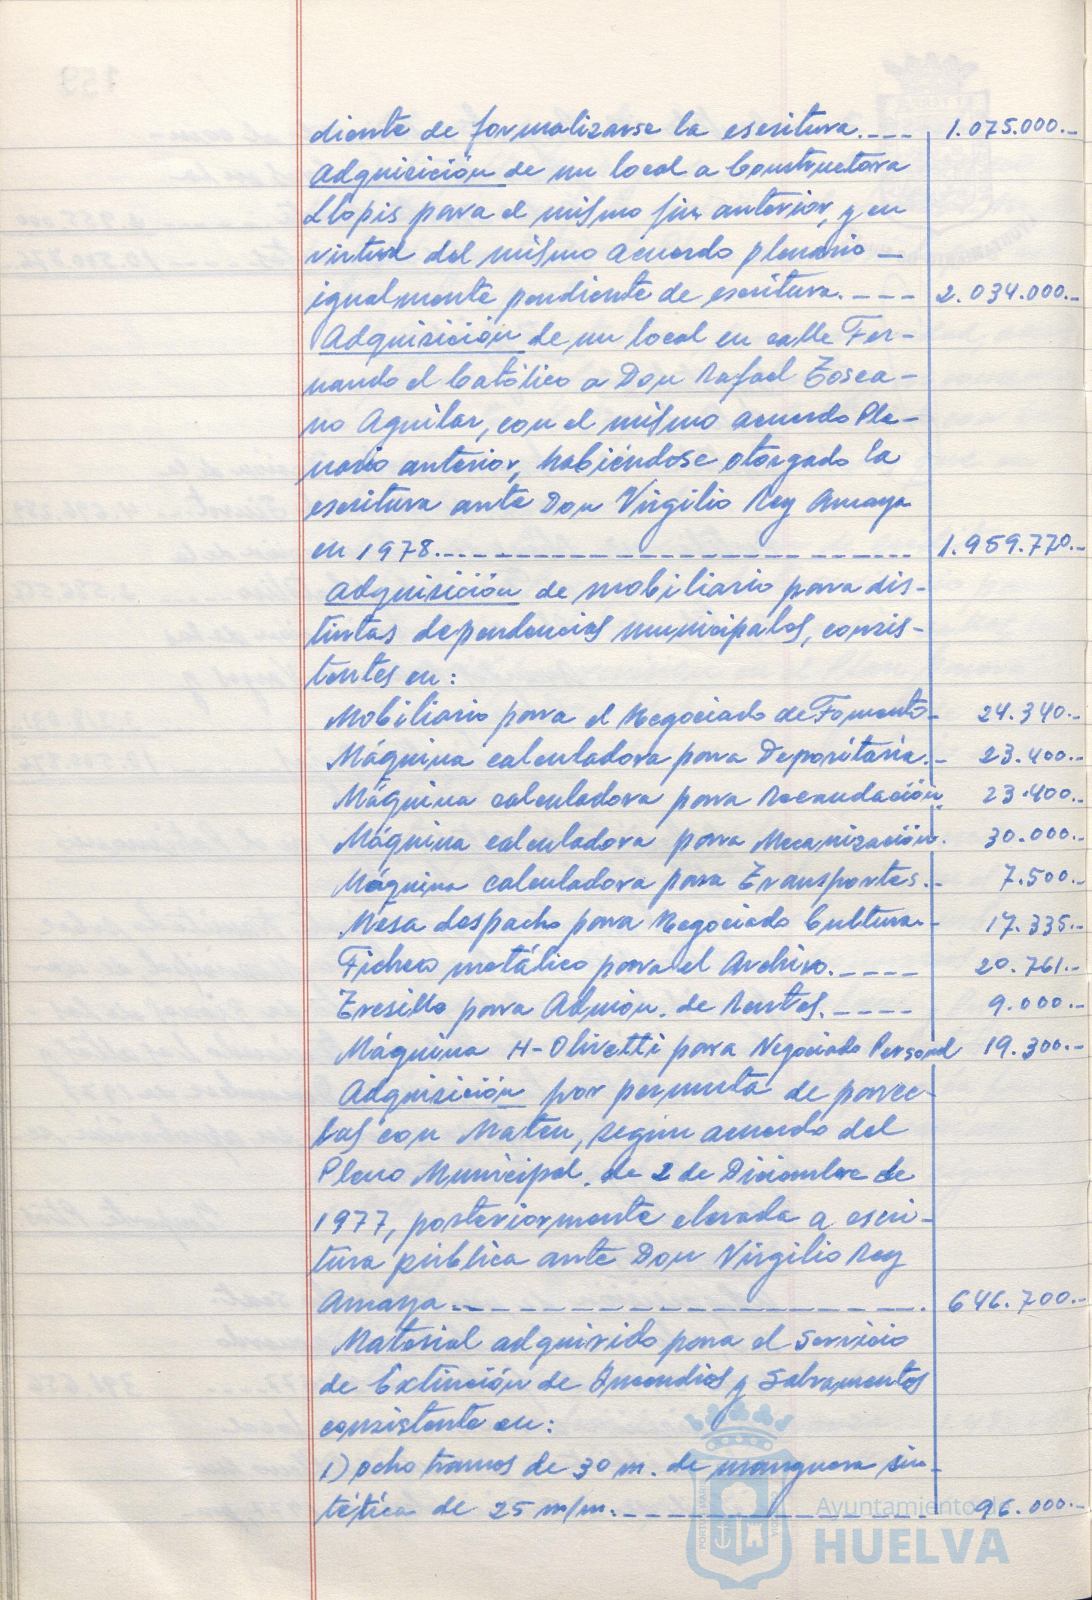 diente de formalizarse la escritura.--- 1.075.000.-
Adquisición de un local a Constructora
Llopis para el mismo fin anterior, y en
virtud del mismo acuerdo plenario -
igualmente pendiente de escritura.--- 2.034.000.-
Adquisición de un local en calle Fer-
nando el Católico a Don Rafael Tosca-
no Aguilar, con el mismo acuerdo Ple-
nario anterior, habiéndose otorgado la
escritura ante Don Virgilio Rey Amaya
en 1978.------------------ 1.959.770.-
Adquisición de mobiliario para dis-
tintas dependencias municipales, consis-
tentes en:
Mobiliario para el Negociado de Fomento- 24.340.-
Máquina calculadora para Depositaría.- 23.400.-
Máquina calculadora para Recaudación 23.400.-
Máquina calculadora para Mecanización. 30.000.-
Máquina calculadora para Transportes.- 7.500.-
Mesa despacho para Negociado Cultura.- 17.335.-
Fichero metálico para el Archivo.---- 20.761.-
Tresillo para Admón. de Rentas.---- 9.000.-
Máquina H-Olivetti para Negociado Personal 19.300.-
Adquisición por permuta de parce-
las con Mateu, según acuerdo del
Pleno Municipal de 2 de Diciembre de
1977, posteriormente elevada a escri-
tura pública ante Don Virgilio Rey
Amaya.------------------. 646.700.-
Material adquirido para el Servicio
de Extinción de Incendios y Salvamentos
consistente en:
1) ocho tramos de 30 m. de manguera sin-
tética de 25 m/m.------------ 96.000.-
Ayuntamiento de
HUELVA